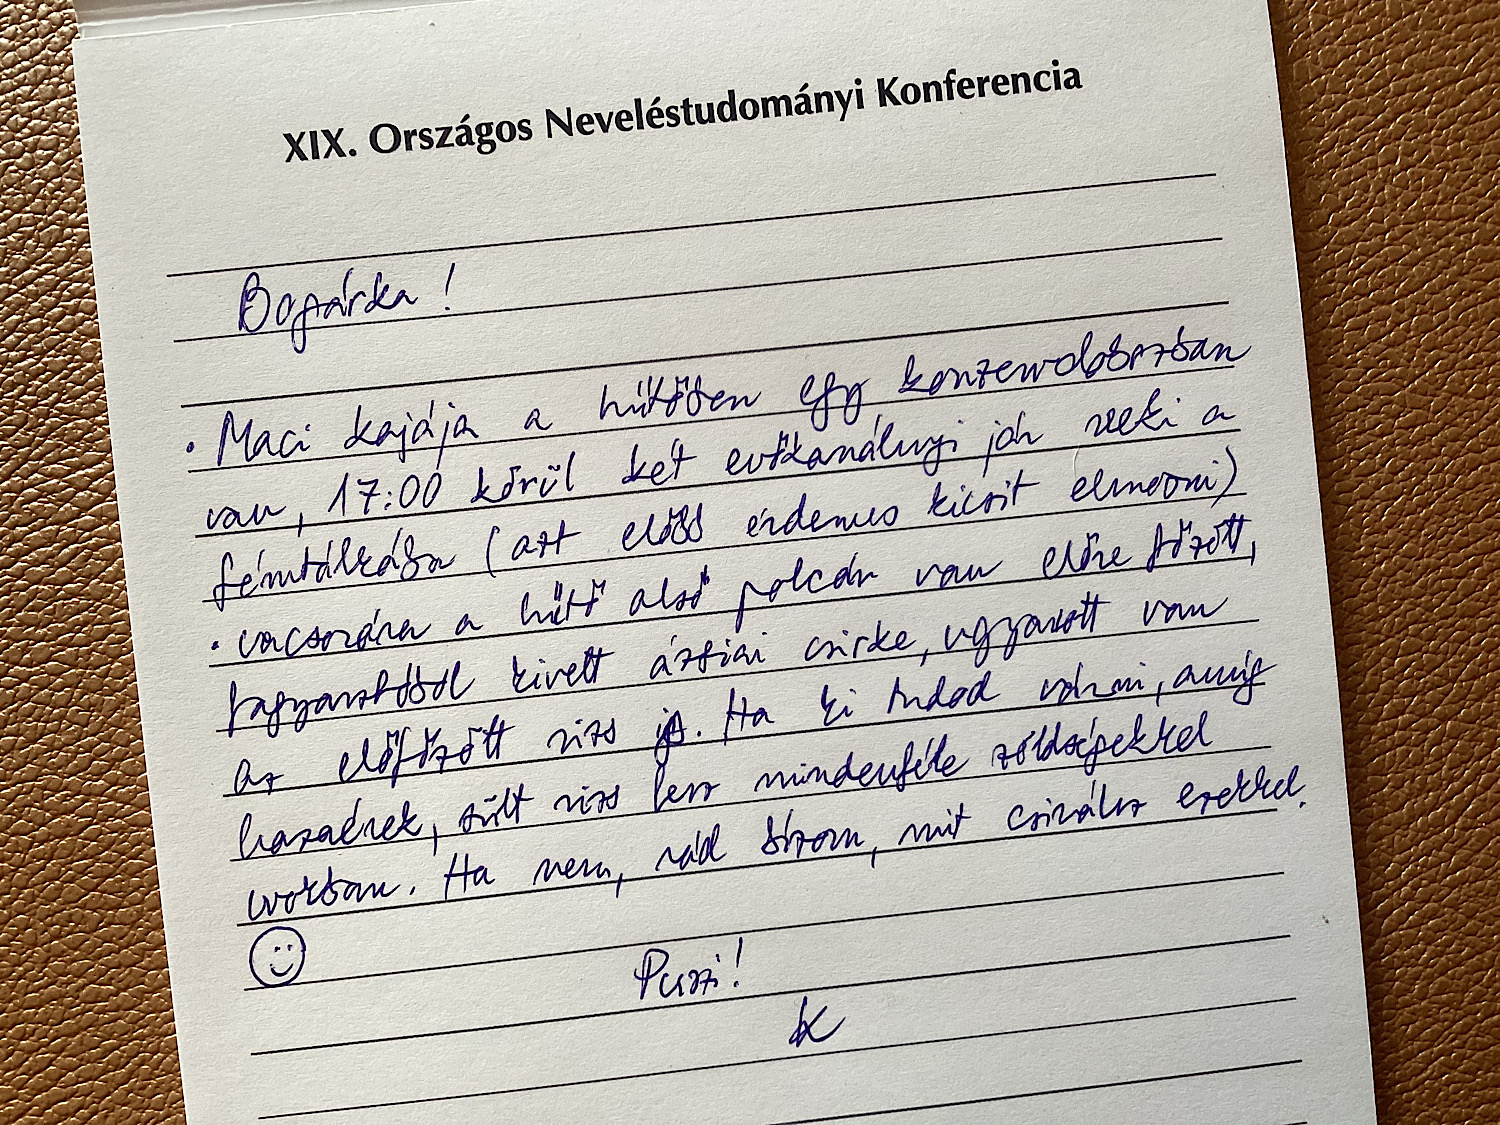 XIX. Országos Neveléstudományi Konferencia
Bogárka!
• Maci kajája a hűtőben egy konzervdobozban
van, 17:00 körül két evőkanálnyi jár neki a
fémtálkába (azt előbb érdemes kicsit elmosni)
• vacsorára a hűtő alsó polcán van előre főzött,
fagyasztóból kivett ázsiai csirke, ugyanott van
az előfőzött rizs is. Ha ki tudod várni, amíg
hazaérek, sült rizs lesz mindenféle zöldségekkel
wokban. Ha nem, rád bízom, mit csinálsz ezekkel.
☺
Puszi!
K